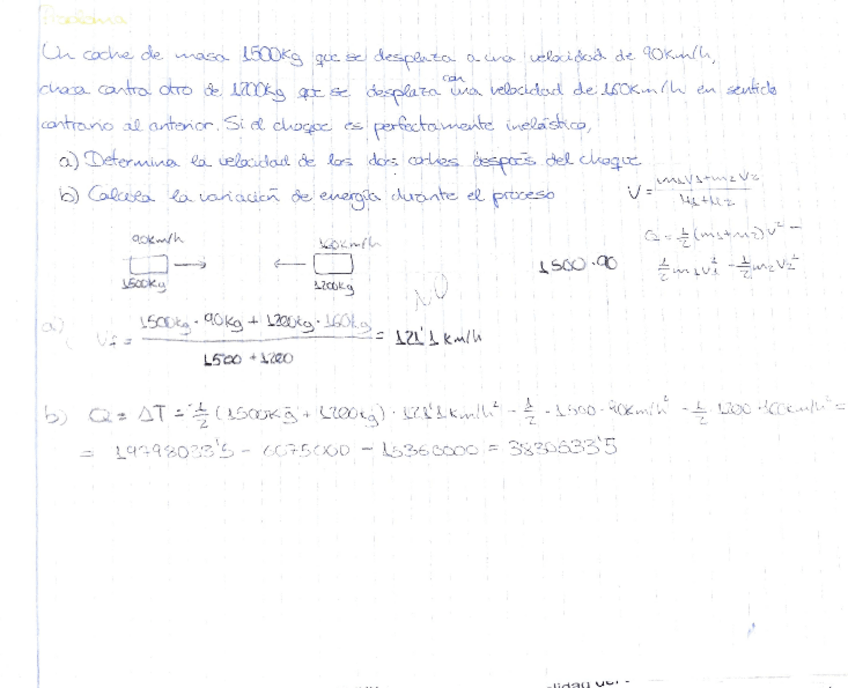 Problema
Un coche de masa 1500Kg que se desplaza a una velocidad de 90Km/h,
choca contra otro de 1200Kg que se desplaza con una velocidad de 160Km/h en sentido
contrario al anterior. Si el choque es perfectamente inelástico,
a) Determina la velocidad de los dos coches después del choque
b) Calcula la variación de energía durante el proceso
V = m1V1+m2V2 / M1+M2
Q = 1/2 (m1+m2)V² - 1/2 m1V1² - 1/2 m2V2²
90Km/h
160Km/h
1500Kg
1200Kg
1500·90
NO
a) Vf = 1500kg · 90Kg + 1200kg · 160kg / 1500 + 1200 = 121'1 km/h
b) Q = ΔT = 1/2 (1500Kg + 1200kg) · 121'1 km/h² - 1/2 · 1500 · 90km/h² - 1/2 1200 · 160km/h² =
= 19798033'5 - 6075000 - 15360000 =